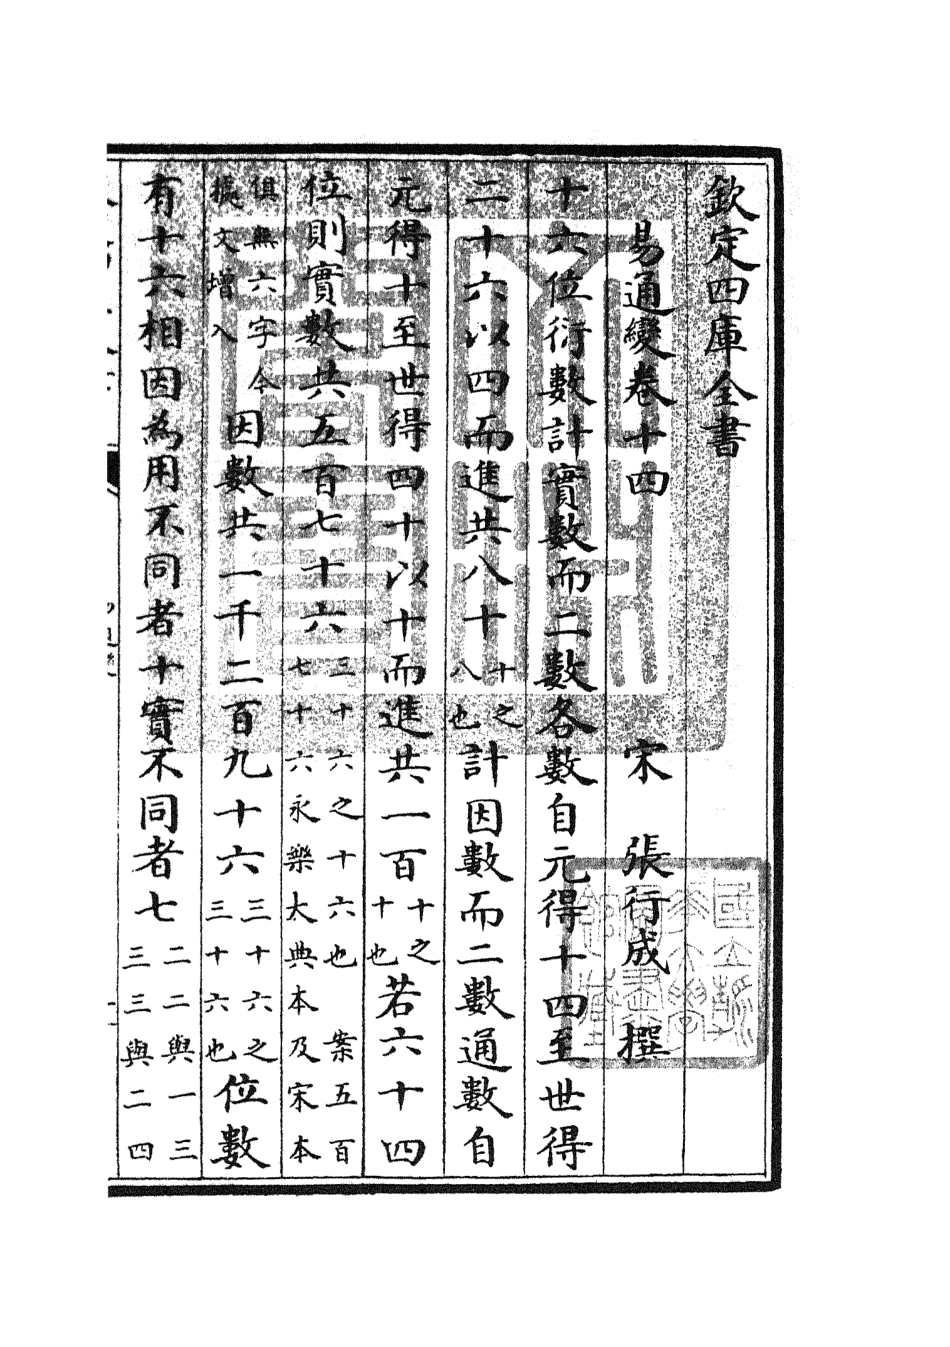 欽定四庫全書
易通變卷十四
宋 張行成 撰
十六位衍數計實數而二數各數自元得十四至世得
二十六以四而進共八十十之八也計因數而二數通數自
元得十至世得四十以十而進共一百十之十也若六十四
位則實數共五百七十六三十六之十六也 案五百七十六永樂大典本及宋本
俱無六字今據文增入因數共一千二百九十六三十六之三十六也位數
有十六相因為用不同者十實不同者七二二與一三三三與二四